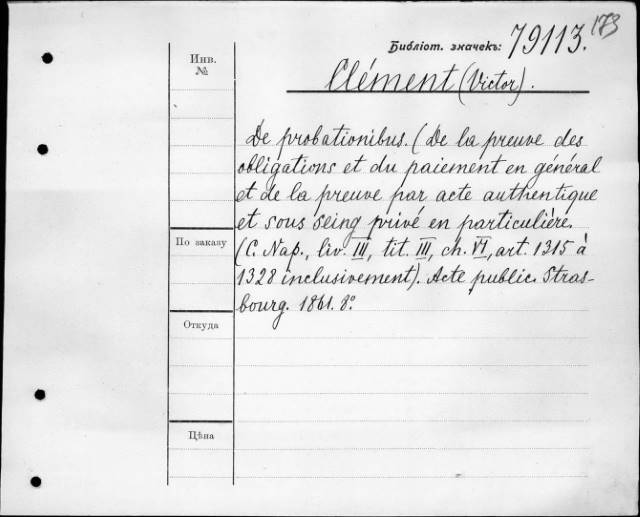 173
Библіот. значекъ: 79113.
Инв.
№
Clément (Victor).
De probationibus. (De la preuve des
obligations et du paiement en général
et de la preuve par acte authentique
et sous seing privé en particulière.
(C. Nap., liv. III, tit. III, ch. VI, art. 1315 à
По заказу
1328 inclusivement). Acte public. Stras-
bourg. 1861. 8°.
Откуда
Цѣна